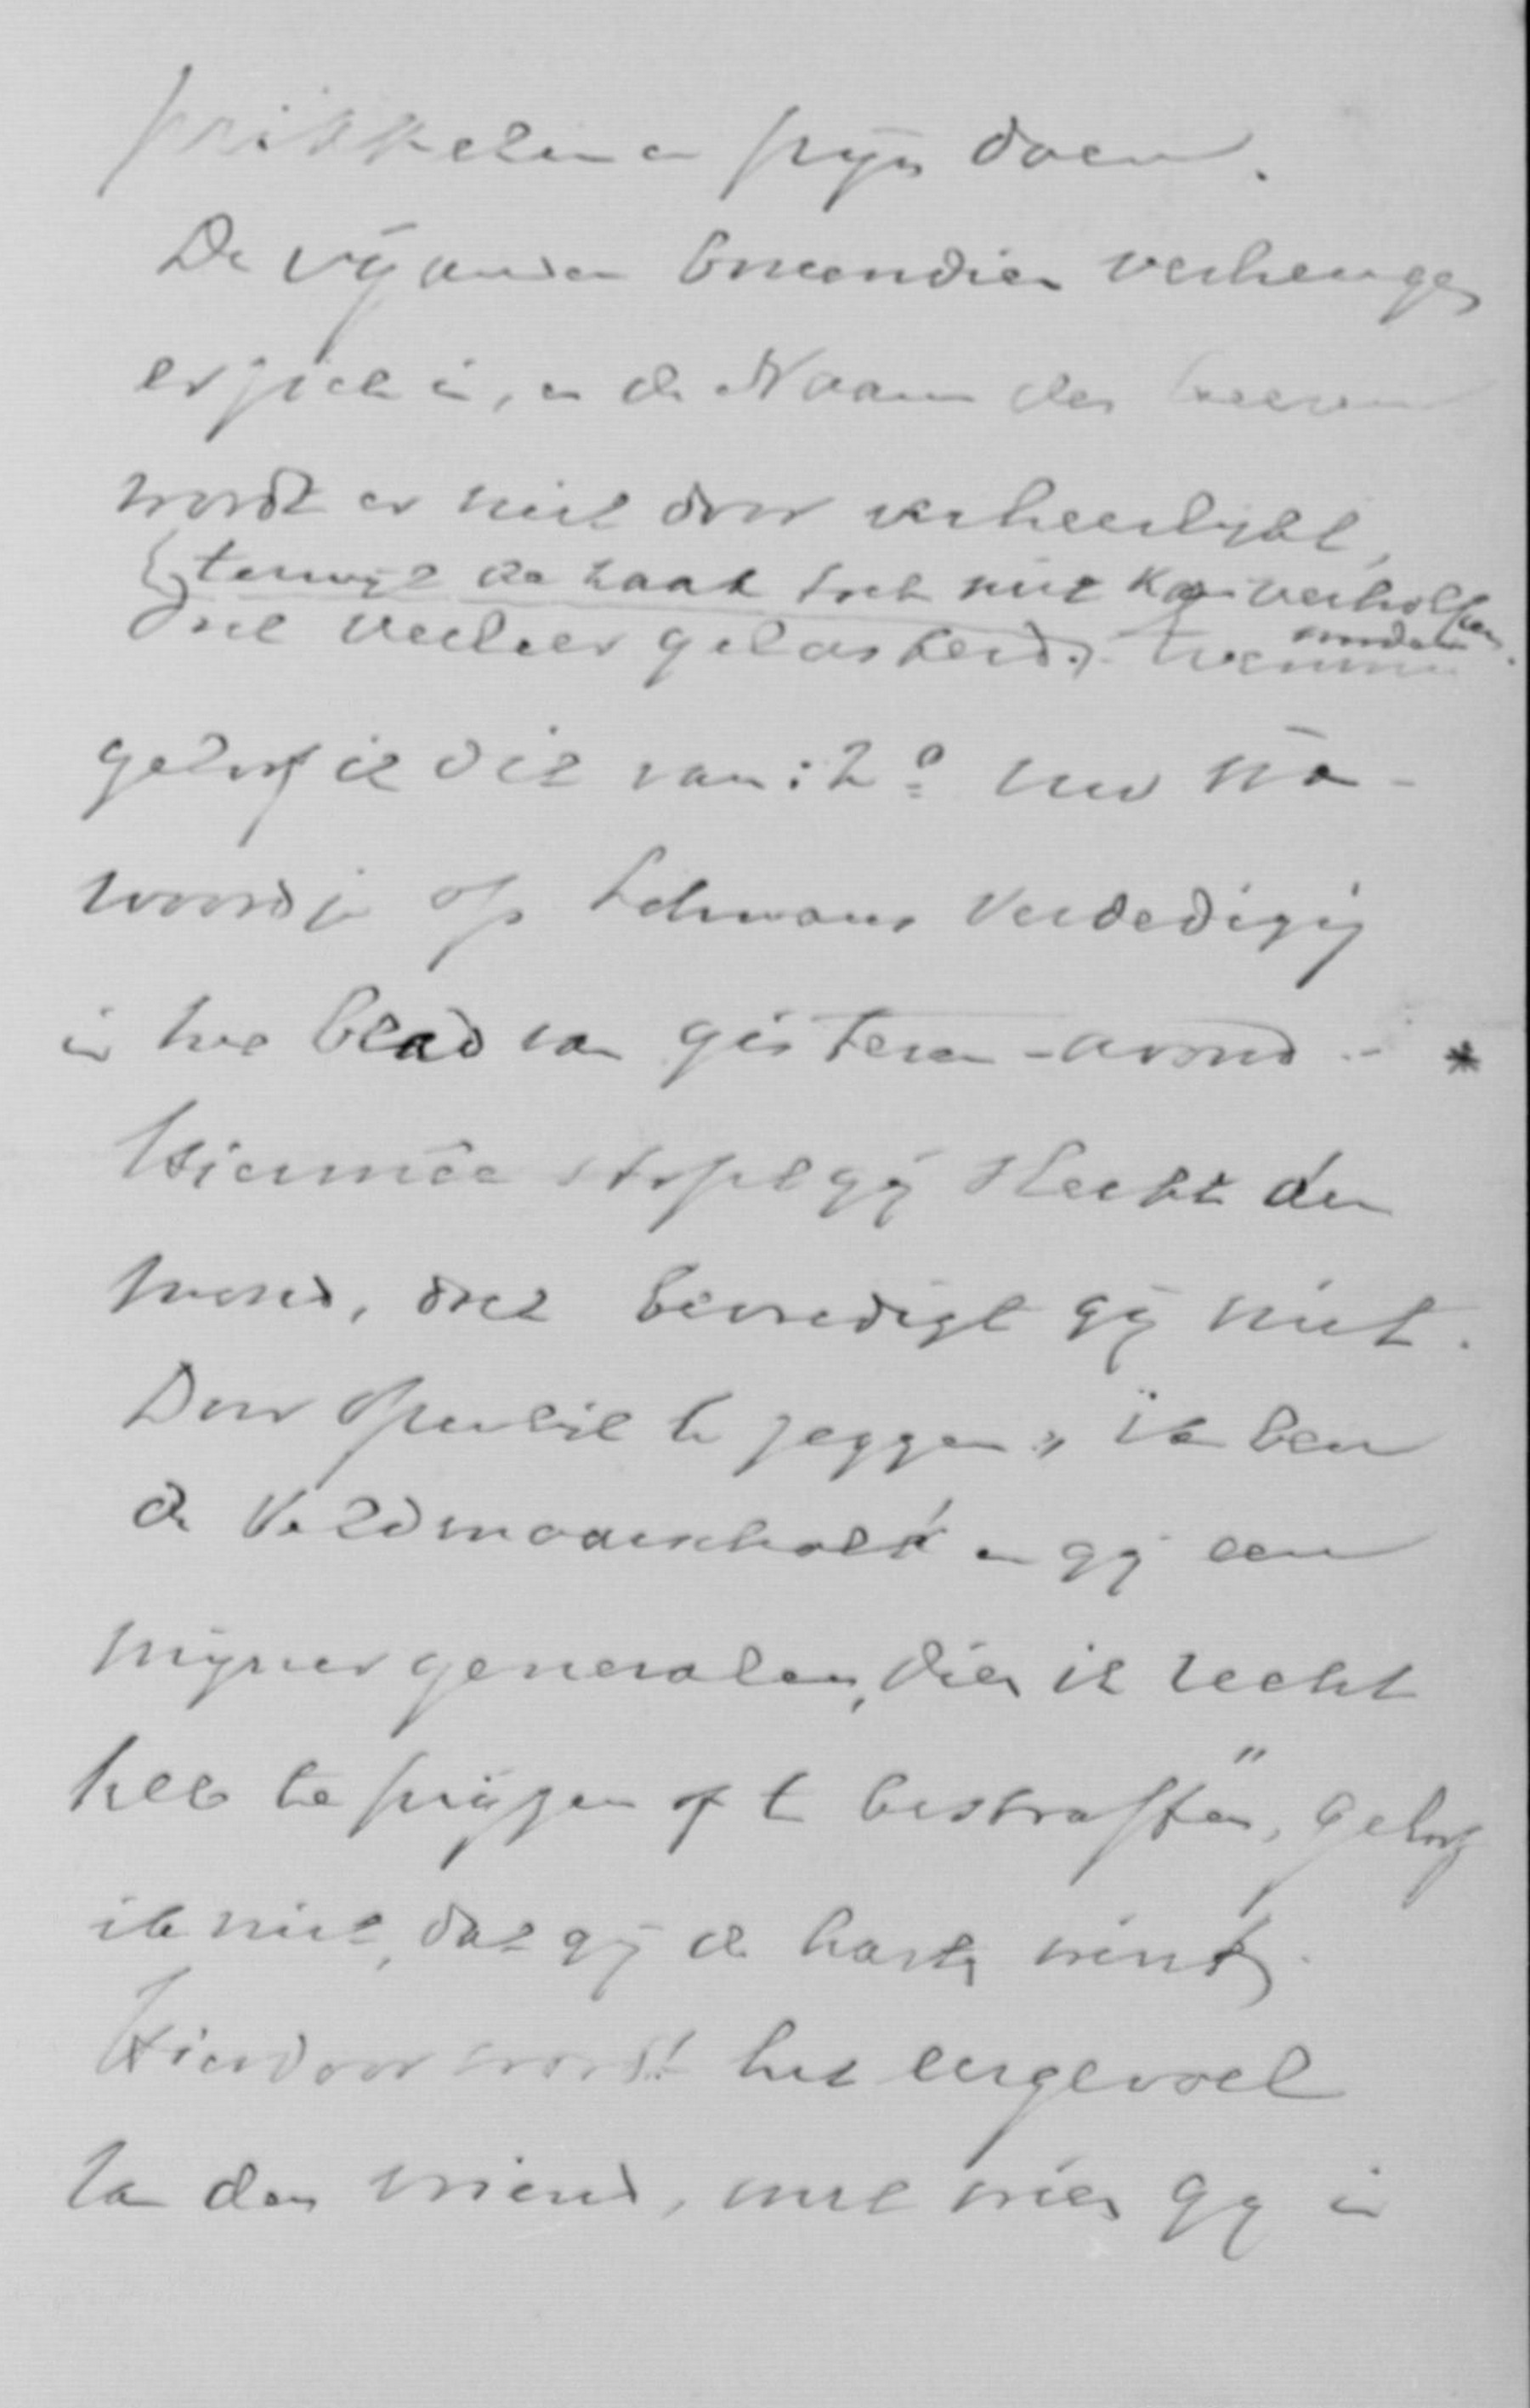 prikkelen en pijn doen.
De vijanden bovendien verheugen
er zich in, en de Naam des Heeren
wordt er niet door verheerlijkt,
(terwijl de zaak toch niet kan verholpen
worden.
veeleer gelasterd).
geloof ik dit van: 2o uw na-
woordje op Lohmans verdediging
in het blad van gisteren-avond. - *
Hiermêe stopt gij slechts den
mond, doch bevredigt gij niet.
Door publiek te zeggen "ik ben
de Veldmaarschalk en gij een
mijner generalen, dien ik recht
heb te prijzen of te bestraffen", geloof
ik niet, dat gij de harten wint.
Hierdoor wordt het eergevoel
van den vriend, met wien gij in